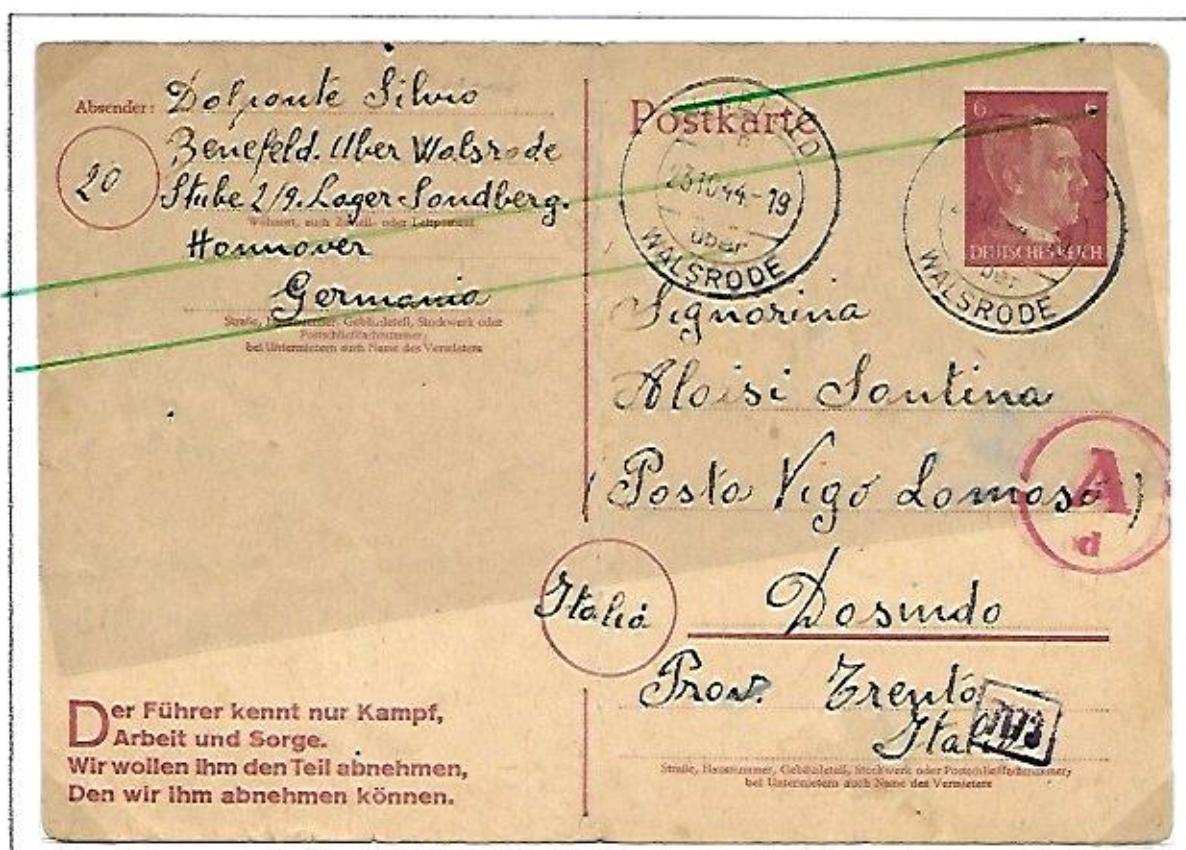 Absender: Dalponte Silvio
20
Benefeld. Uber Walsrode
Stube 2/9. Lager-Sandberg.
Wohnort, auch Zustell- oder Leitpostamt
Hannover
Germania
Straße, Hausnummer, Gebäudeteil, Stockwerk oder
Postschließfachnummer;
bei Untermietern auch Name des Vermieters
Der Führer kennt nur Kampf,
Arbeit und Sorge.
Wir wollen ihm den Teil abnehmen,
Den wir ihm abnehmen können.
Postkarte
23.10.44-19
über
WALSRODE
6
DEUTSCHES REICH
über
WALSRODE
Signorina
Aloisi Santina
(Posta Vigo Lomaso)
A
d
Italia
Dasindo
Prov. Trento
Italia
Straße, Hausnummer, Gebäudeteil, Stockwerk oder Postschließfachnummer;
bei Untermietern auch Name des Vermieters